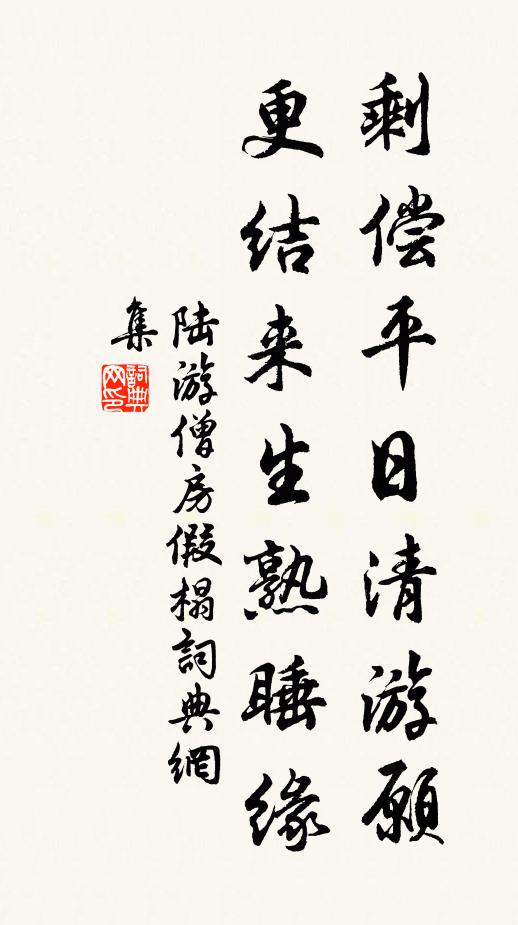 剩偿平日清游愿
更结来生熟睡缘
陆游僧房假榻詞典網
集
詞典
网印